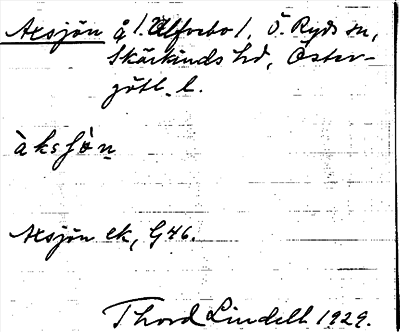 Axsjön å /: Ulfvebo /, Ö. Ryds sn,
Skärkinds hd, Öster-
götl. l.
àksjö̀n
Axsjön ek, G46.
Thord Lindell 1929.